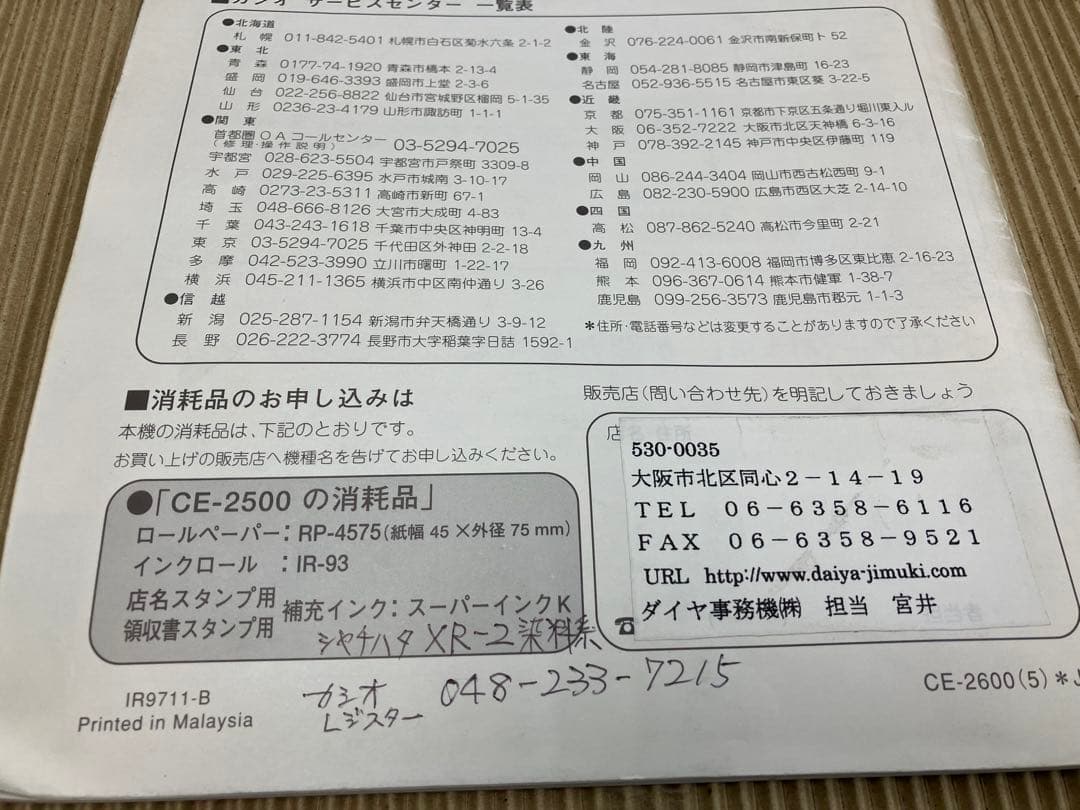 ■カシオ サービスセンター 一覧表
●北海道
札幌 011-842-5401 札幌市白石区菊水六条 2-1-2
●東北
青森 0177-74-1920 青森市橋本 2-13-4
盛岡 019-646-3393 盛岡市上堂 2-3-6
仙台 022-256-8822 仙台市宮城野区榴岡 5-1-35
山形 0236-23-4179 山形市諏訪町 1-1-1
●関東
首都圏OAコールセンター 03-5294-7025
(修理・操作説明)
宇都宮 028-623-5504 宇都宮市戸祭町 3309-8
水戸 029-225-6395 水戸市城南 3-10-17
高崎 0273-23-5311 高崎市新町 67-1
埼玉 048-666-8126 大宮市大成町 4-83
千葉 043-243-1618 千葉市中央区神明町 13-4
東京 03-5294-7025 千代田区外神田 2-2-18
多摩 042-523-3990 立川市曙町 1-22-17
横浜 045-211-1365 横浜市中区南仲通り 3-26
●信越
新潟 025-287-1154 新潟市弁天橋通り 3-9-12
長野 026-222-3774 長野市大字稲葉字日詰 1592-1
●北陸
金沢 076-224-0061 金沢市南新保町ト 52
●東海
静岡 054-281-8085 静岡市津島町 16-23
名古屋 052-936-5515 名古屋市東区葵 3-22-5
●近畿
京都 075-351-1161 京都市下京区五条通り堀川東入ル
大阪 06-352-7222 大阪市北区天神橋 6-3-16
神戸 078-392-2145 神戸市中央区伊藤町 119
●中国
岡山 086-244-3404 岡山市西古松西町 9-1
広島 082-230-5900 広島市西区大芝 2-14-10
●四国
高松 087-862-5240 高松市今里町 2-21
●九州
福岡 092-413-6008 福岡市博多区東比恵 2-16-23
熊本 096-367-0614 熊本市健軍 1-38-7
鹿児島 099-256-3573 鹿児島市郡元 1-1-3
*住所・電話番号などは変更することがありますので了承ください
■消耗品のお申し込みは
本機の消耗品は、下記のとおりです。
お買い上げの販売店へ機種名を告げてお申し込みください。
●「CE-2500 の消耗品」
ロールペーパー: RP-4575(紙幅 45 ×外径 75 mm)
インクロール :IR-93
店名スタンプ用
領収書スタンプ用 補充インク: スーパーインクK
シヤチハタ XR-2 染料系
カシオ レジスター 048-233-7215
販売店(問い合わせ先)を明記しておきましょう
店
530-0035
大阪市北区同心2-14-19
TEL 06-6358-6116
FAX 06-6358-9521
URL http://www.daiya-jimuki.com
ダイヤ事務機㈱ 担当 宮井
☎
IR9711-B
Printed in Malaysia
CE-2600(5)*J